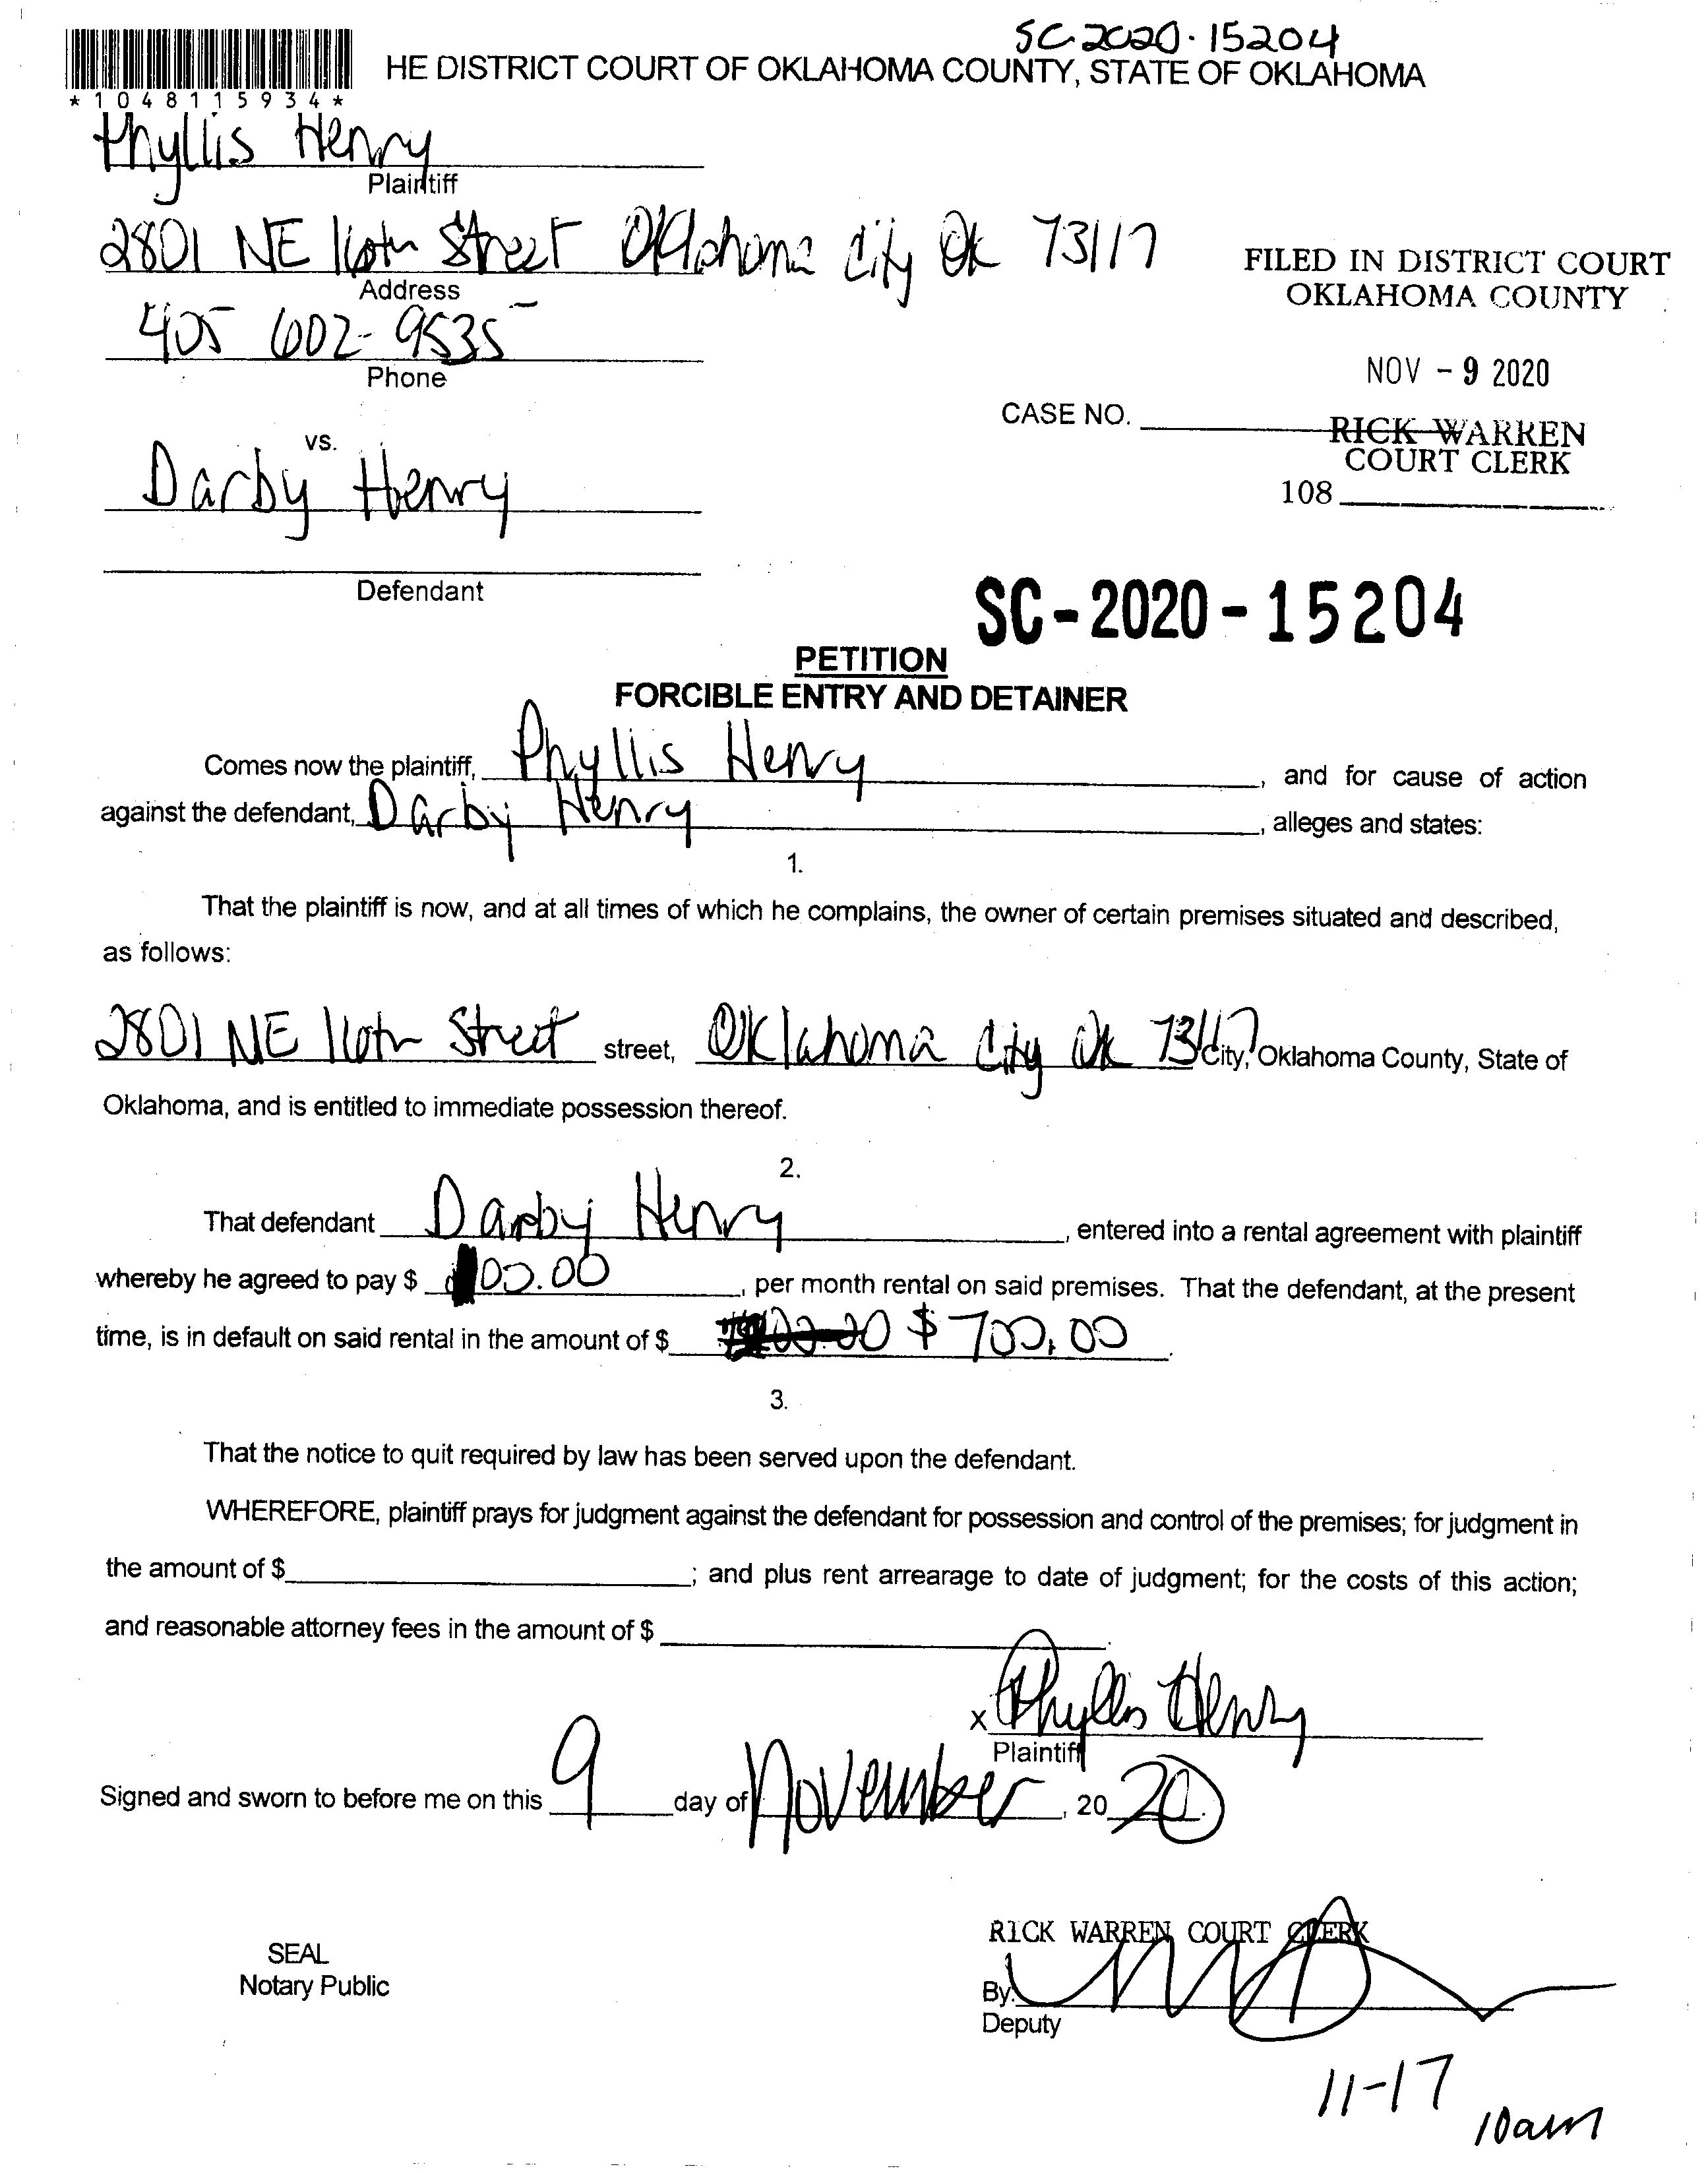 SC-2020-15204
HE DISTRICT COURT OF OKLAHOMA COUNTY, STATE OF OKLAHOMA
*1048115934*
Phyllis Henry
Plaintiff
2801 NE 16th Street Oklahoma City Ok 73117
Address
405 602-9535
Phone
FILED IN DISTRICT COURT
OKLAHOMA COUNTY
NOV - 9 2020
CASE NO.
RICK WARREN
COURT CLERK
108
vs.
Darby Henry
Defendant
SC-2020-15204
PETITION
FORCIBLE ENTRY AND DETAINER
Comes now the plaintiff, Phyllis Henry, and for cause of action
against the defendant, Darby Henry, alleges and states:
1.
That the plaintiff is now, and at all times of which he complains, the owner of certain premises situated and described,
as follows:
2801 NE 16th Street street, Oklahoma City Ok 73117 City, Oklahoma County, State of
Oklahoma, and is entitled to immediate possession thereof.
2.
That defendant Darby Henry, entered into a rental agreement with plaintiff
whereby he agreed to pay $ 00.00, per month rental on said premises. That the defendant, at the present
time, is in default on said rental in the amount of $ $700.00.
3.
That the notice to quit required by law has been served upon the defendant.
WHEREFORE, plaintiff prays for judgment against the defendant for possession and control of the premises; for judgment in
the amount of $ ; and plus rent arrearage to date of judgment; for the costs of this action;
and reasonable attorney fees in the amount of $ .
x Phyllis Henry
Plaintiff
Signed and sworn to before me on this 9 day of November, 20 20.
SEAL
Notary Public
RICK WARREN COURT CLERK
By:
Deputy
11-17
10am